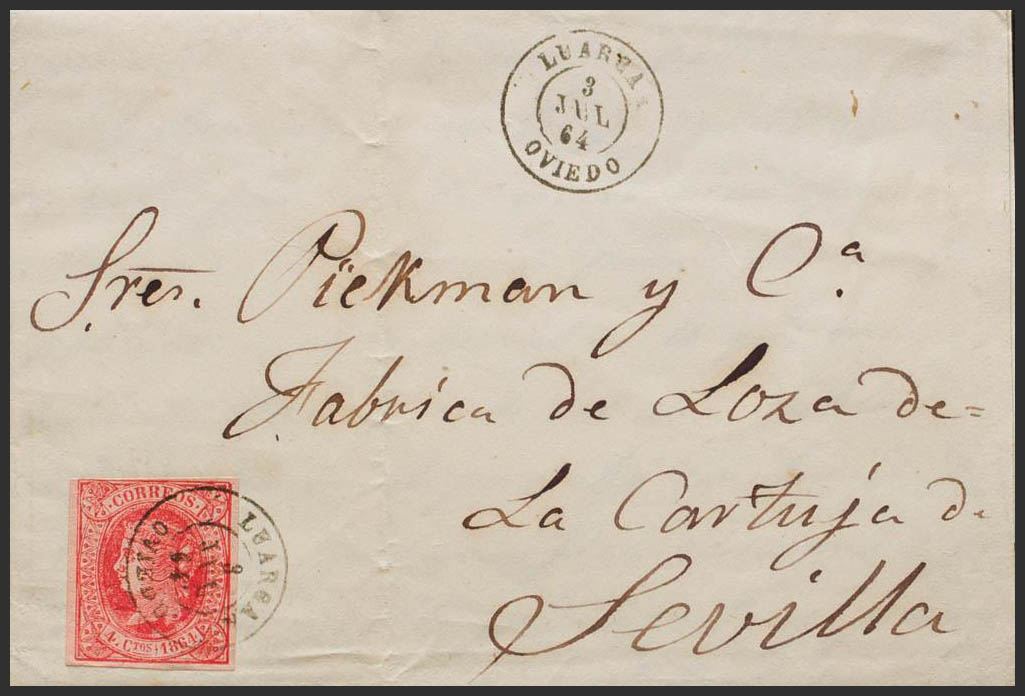 LUARCA
3
JUL
64
OVIEDO
Sres. Pickman y Cª.
Fabrica de Loza de=
La Cartuja d.
Sevilla
CORREOS.
4. CTOS. 1864
LUARCA
3
JUL
64
OVIEDO